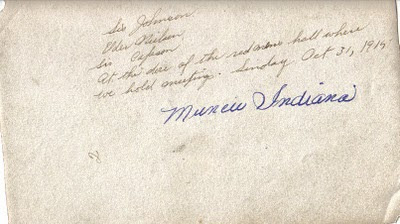 Sis Johnson
Elder Nielsen
Sis Cepson
At the door of the redmens hall where
we hold meeting. Sunday Oct 31, 1915
Muncie Indiana